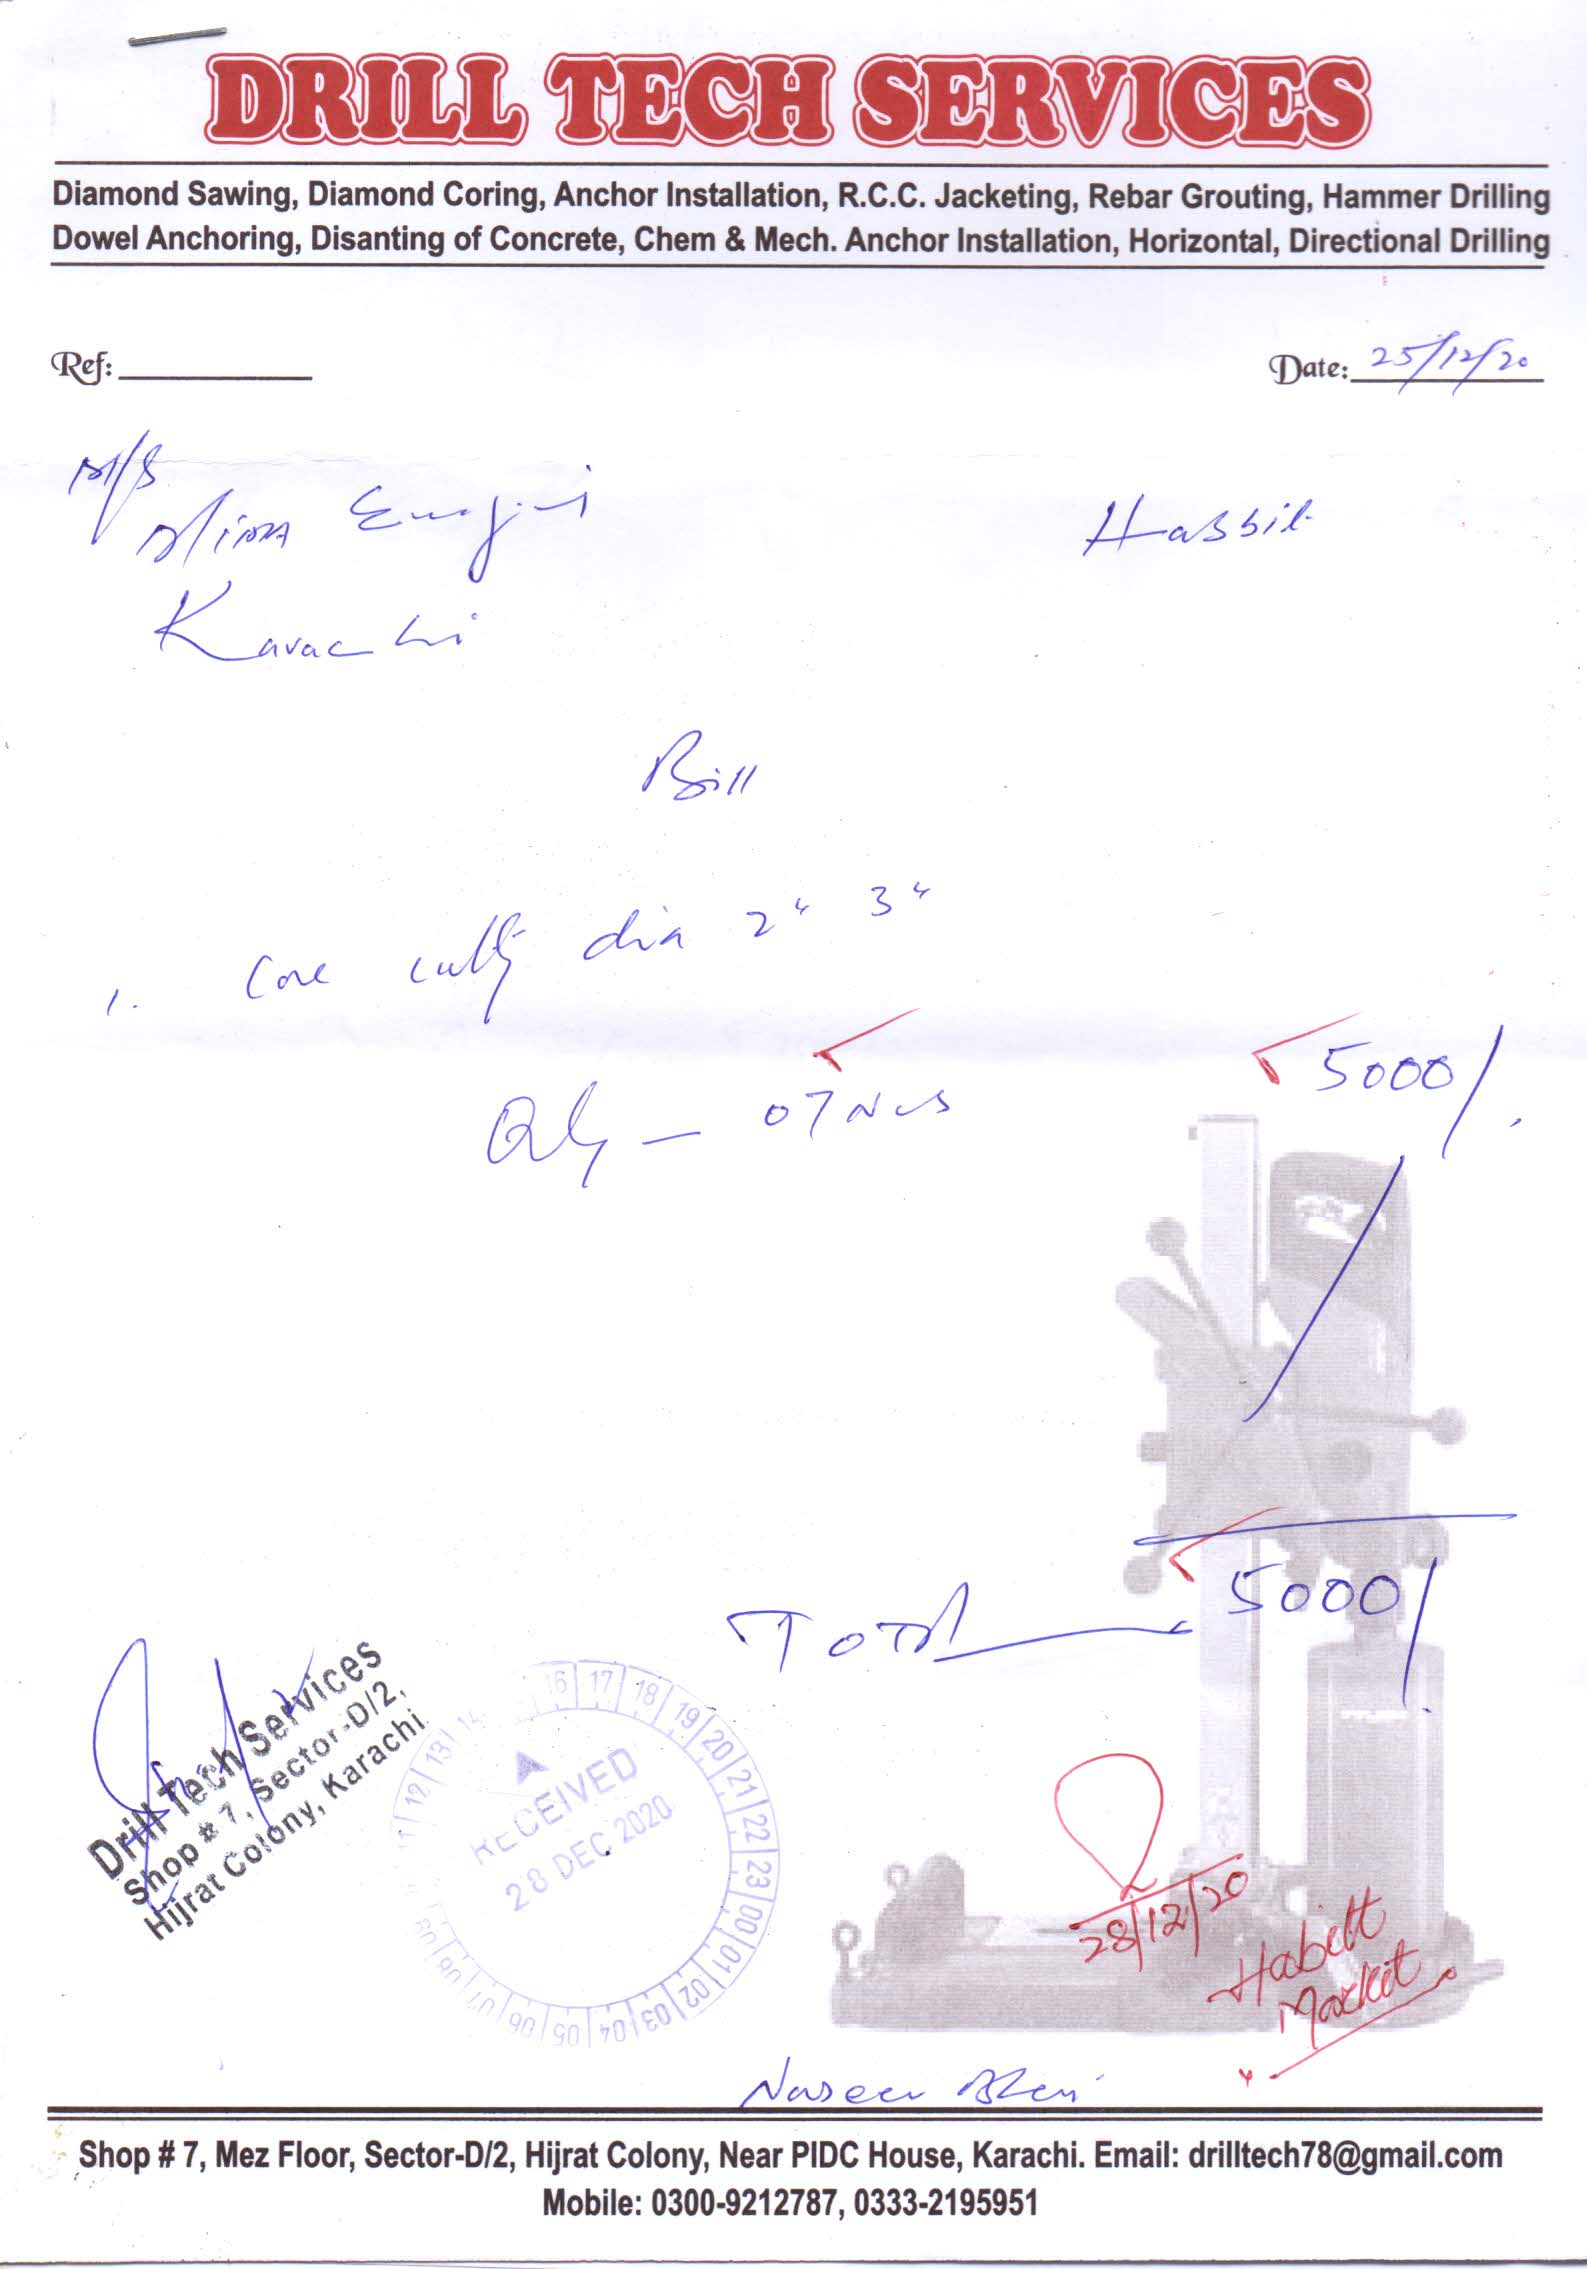 DRILL TECH SERVICES
Diamond Sawing, Diamond Coring, Anchor Installation, R.C.C. Jacketing, Rebar Grouting, Hammer Drilling
Dowel Anchoring, Disanting of Concrete, Chem & Mech. Anchor Installation, Horizontal, Directional Drilling
Ref:
Date: 25/12/20
M/S
Karachi
Bill
1. Core dia 2" 3"
Qty — 07 Nos
5000/.
Total 5000/.
Drill Tech Services
Shop # 7, Sector-D/2,
Hijrat Colony, Karachi
16 17 18 19 20 21 22 23 00 01 02 03 04 05 06 07 08 11 12 13 14
RECEIVED
28 DEC 2020
28/12/20
Habitt
Market
Naseer Bhai
Shop # 7, Mez Floor, Sector-D/2, Hijrat Colony, Near PIDC House, Karachi. Email: drilltech78@gmail.com
Mobile: 0300-9212787, 0333-2195951